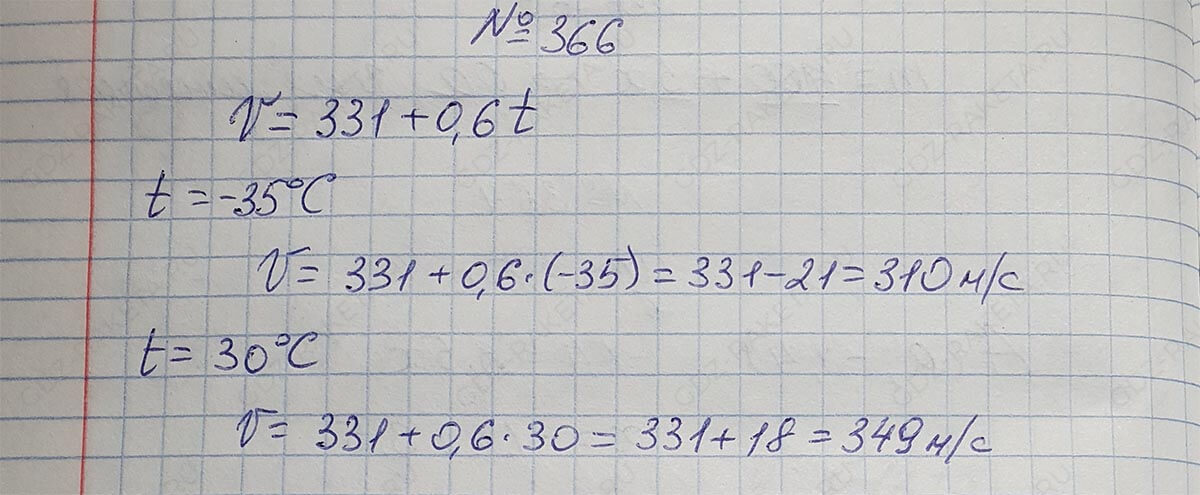 № 366
V = 331 + 0,6 t
t = -35°C
V = 331 + 0,6 · (-35) = 331 - 21 = 310 м/с
t = 30°C
V = 331 + 0,6 · 30 = 331 + 18 = 349 м/с